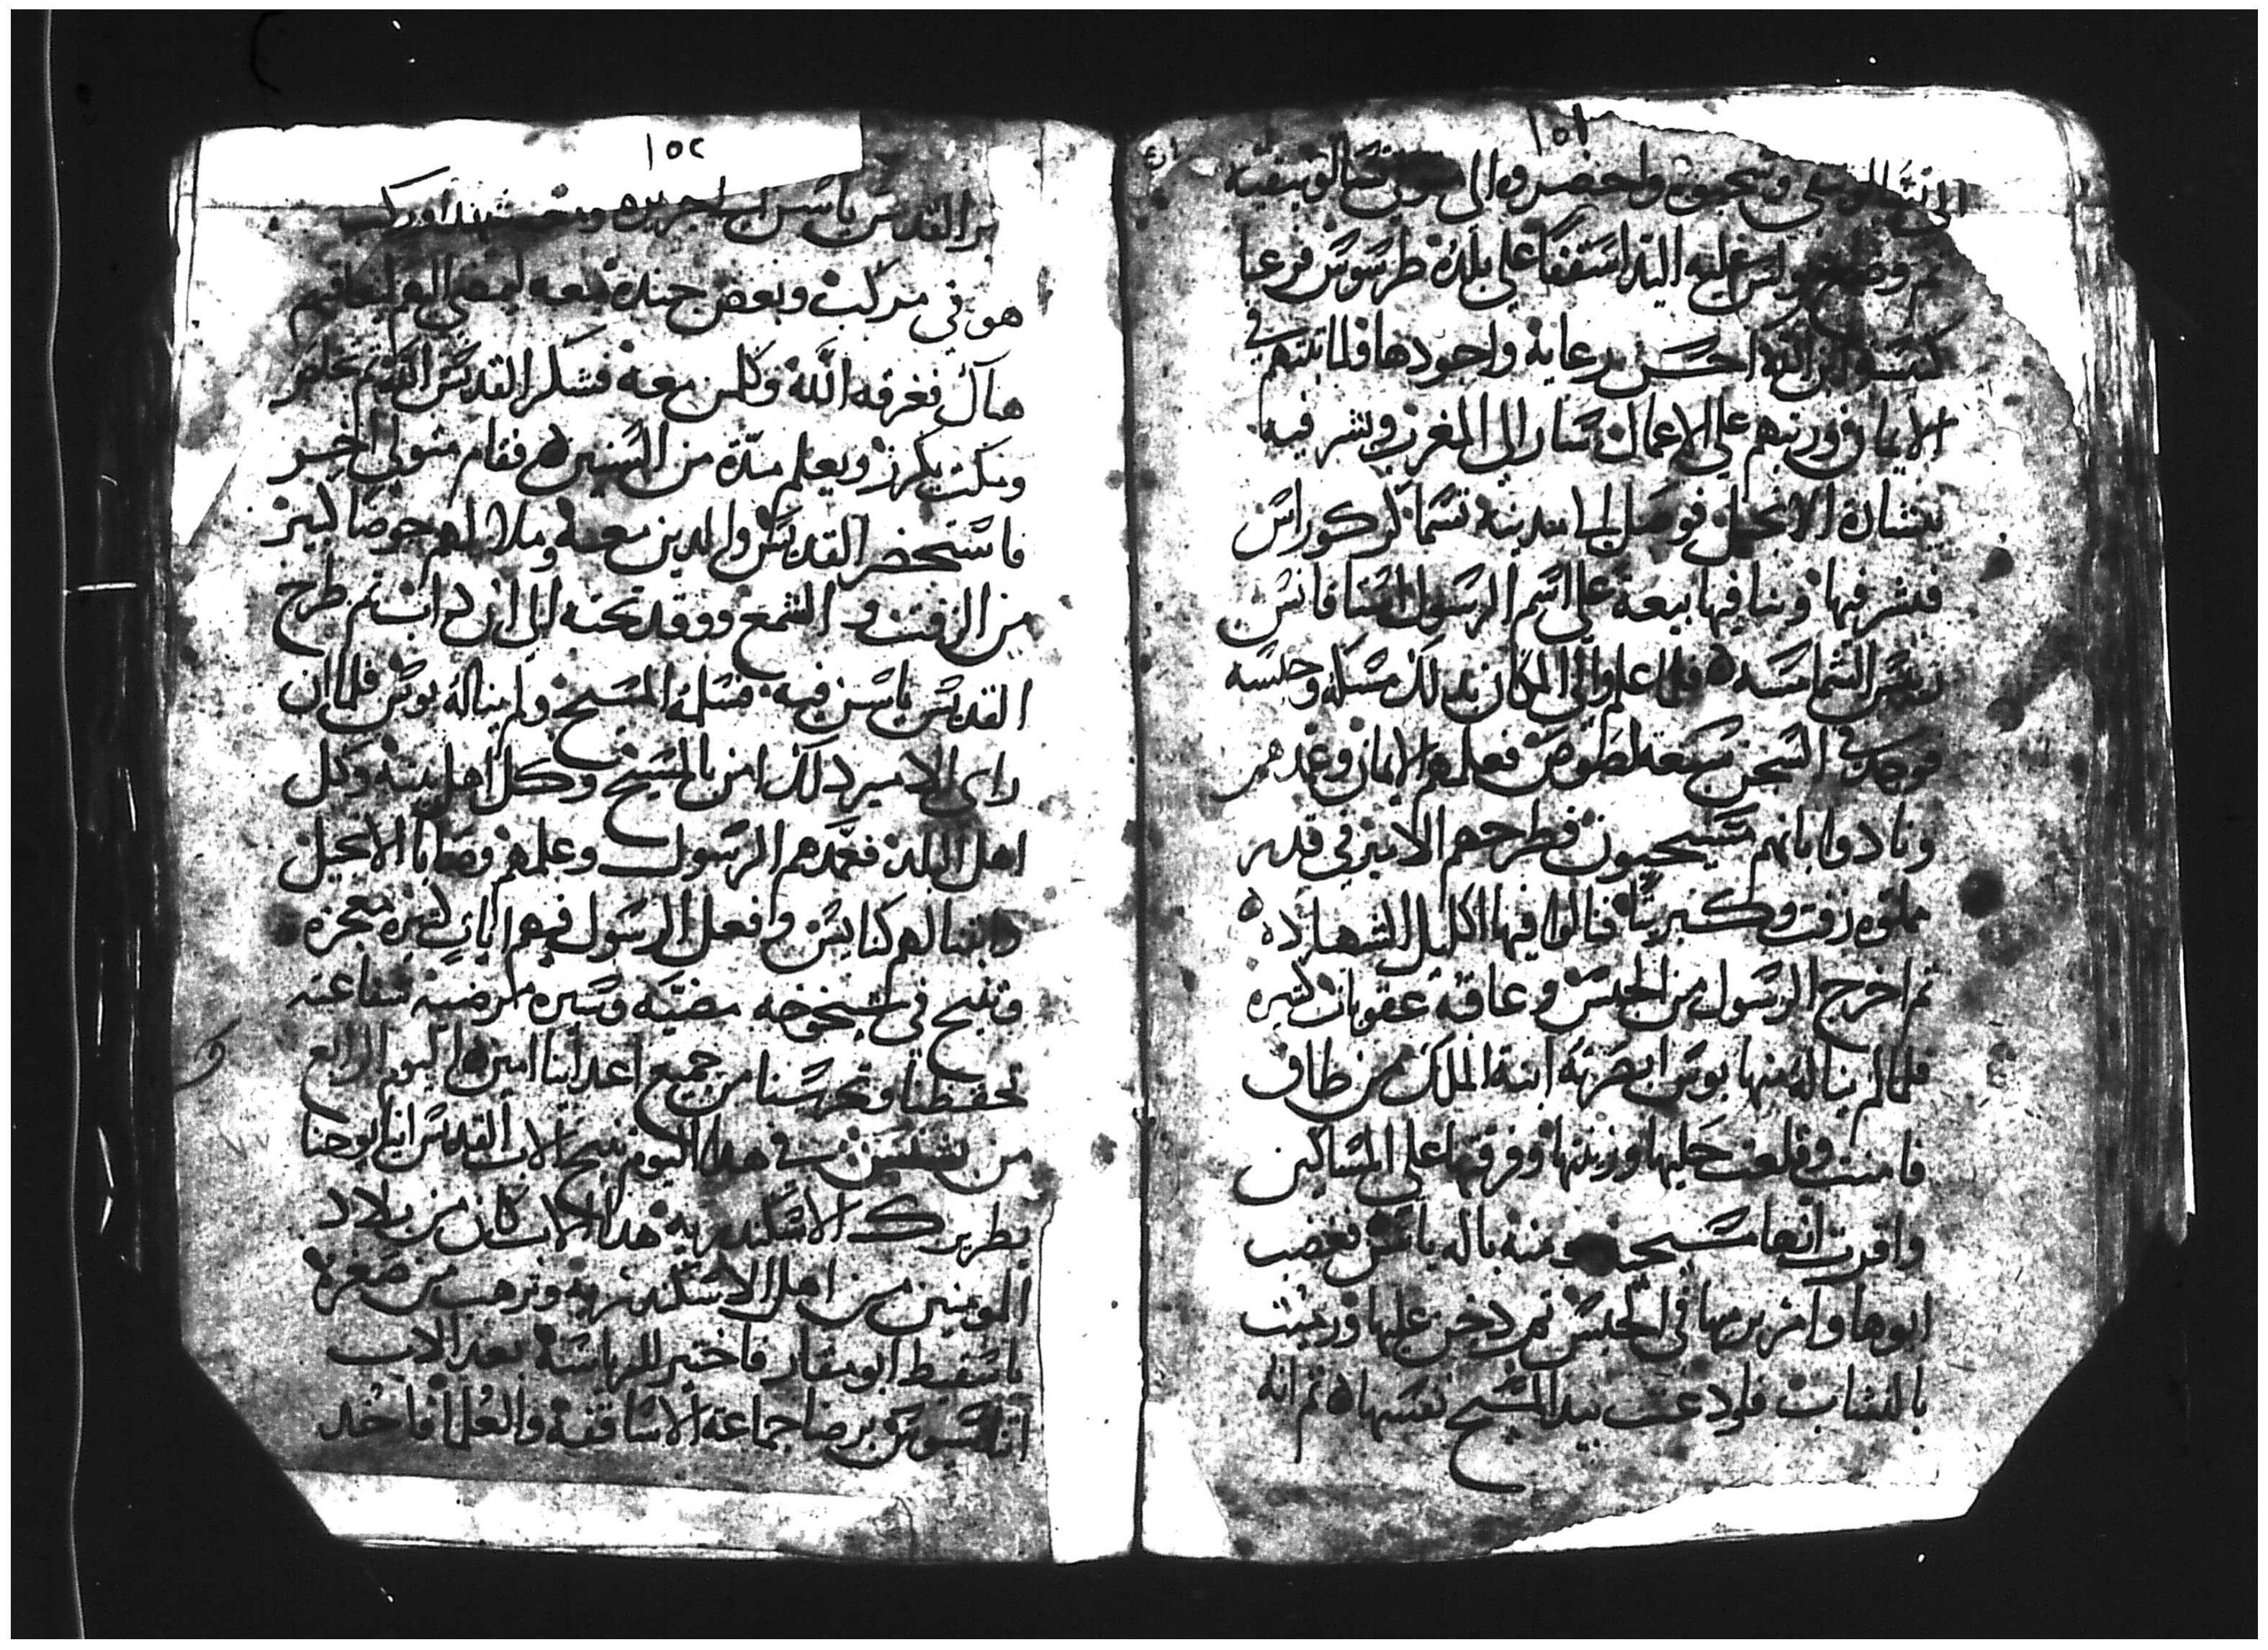 ١٥١
ثم وضع بولس عليه اليد اسقفا على بلده طرسوس فرعا
كنيسة ابن الله احسن رعاية واجودها فلما ثبتهم في
الايمان ورتبهم على الاعمال سار الى المغرب وبشر فيه
ببشارة الانجيل فوصل الى مدينة تسما كركوراس
فبشر فيها وبنا فيها بيعة على اسم الرسول اسطافانس
رييس الشمامسه ٥ فلما علم والي المكان بدلك مسكه وحبسه
فوجد في السجن سبعة لصوص فعلمهم الايمان وعمدهم
ونادوا بانهم مسيحيون فطرحهم الامير في قدر
مملوه زفت وكبريتا فنالوا فيها اكليل الشهاده ٥
ثم اخرج الرسول من الحبس وعاقبه عقوبات كثيره
فلما لم يناله منها بوس ابصرته ابنة الملك من طاف
فامنت وقلعت حليها وزينتها وفرقتها على المساكين
واقرت انها مسيحية مومنة باله ياسن فغضب
ابوها وامر برميها في الحبس ثم دخن عليها ورميت
بالنشاب فاودعت بيد المسيح نفسها ٥ ثم انه
١٥٢
هو في مركب وبعض جنده معه ليمضي اليهم ليعاقبهم
هناك فغرقه الله وكلمن معه فشكر القديس الله ثم علمهم
ومكث يكرز ويعلم مدة من السنين ٥ فقام متولي اخر
فاستحضر القديس والدين معه وملا لهم حوضا كبير
من الزفت و الشمع ووقد تحته الى ان داب ثم طرح
القديس ياسن فيه فسلمه المسيح ولم يناله بوس فلما ان
راى الامير دلك امن بالمسيح وكل اهل بيته وكل
اهل البلد فعمدهم الرسول وعلمهم وصايا الانجيل
وابنا لهم كنايس وافعل الرسول فيهم ايات كثيره معجزة
وتنيح في شيخوخه مضيه وسيره مرضيه شفاعته
تحفظنا وتحرسنا من جميع اعداينا امين ٥ اليوم الرابع
من بشنس في هدا اليوم تنيح الاب القديس انبا يوحنا
بطريرك الاسكندريه هدا الاب كان من بلاد
المومنين من اهل الاسكندريه وترهب من صغره
باسقيط ابو مقار فاختير للرياسة بعد الاب
اتناسيوس برضا جماعة الاساقفه والعلما فاخد